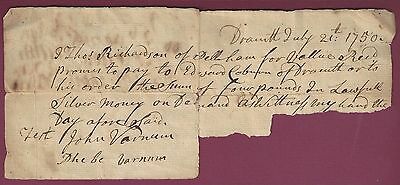 Dracutt July 21th 1750
I Thos Richardson of Pelham for Vallue Recd
Promis to pay to Edward Coburn of Dracutt or to
his order the sum of four pounds In Lawfull
Silver Money on Demand as Witness my hand the
Day above Said
Test John Varnum
Phebe Varnum